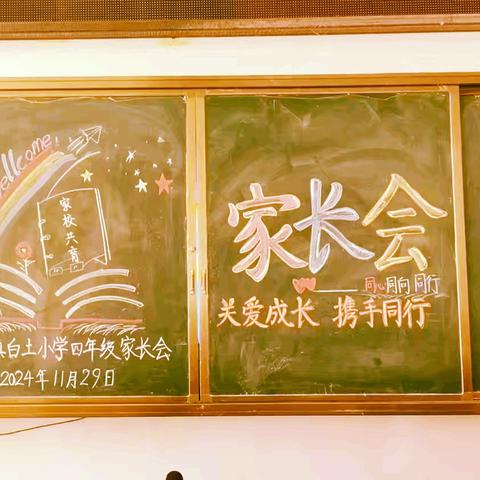 Wellcome
家校共育
白土小学四年级家长会
2024年11月29日
家长会
同心同向同行
关爱成长 携手同行